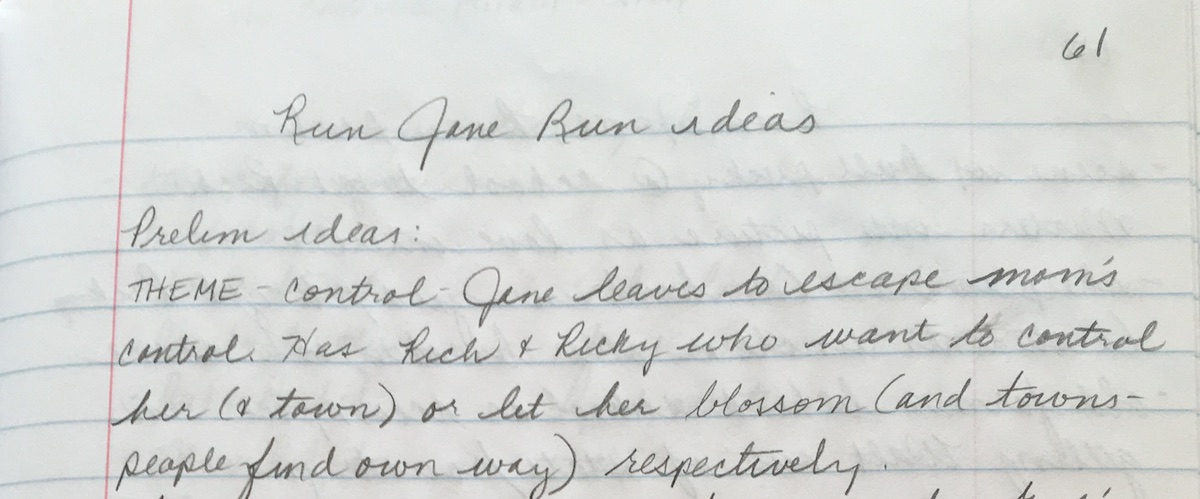 61
Run Jane Run ideas
Prelim ideas:
THEME - control - Jane leaves to escape mom's
control. Has Rich & Ricky who want to control
her (& town) or let her blossom (and towns-
people find own way) respectively.